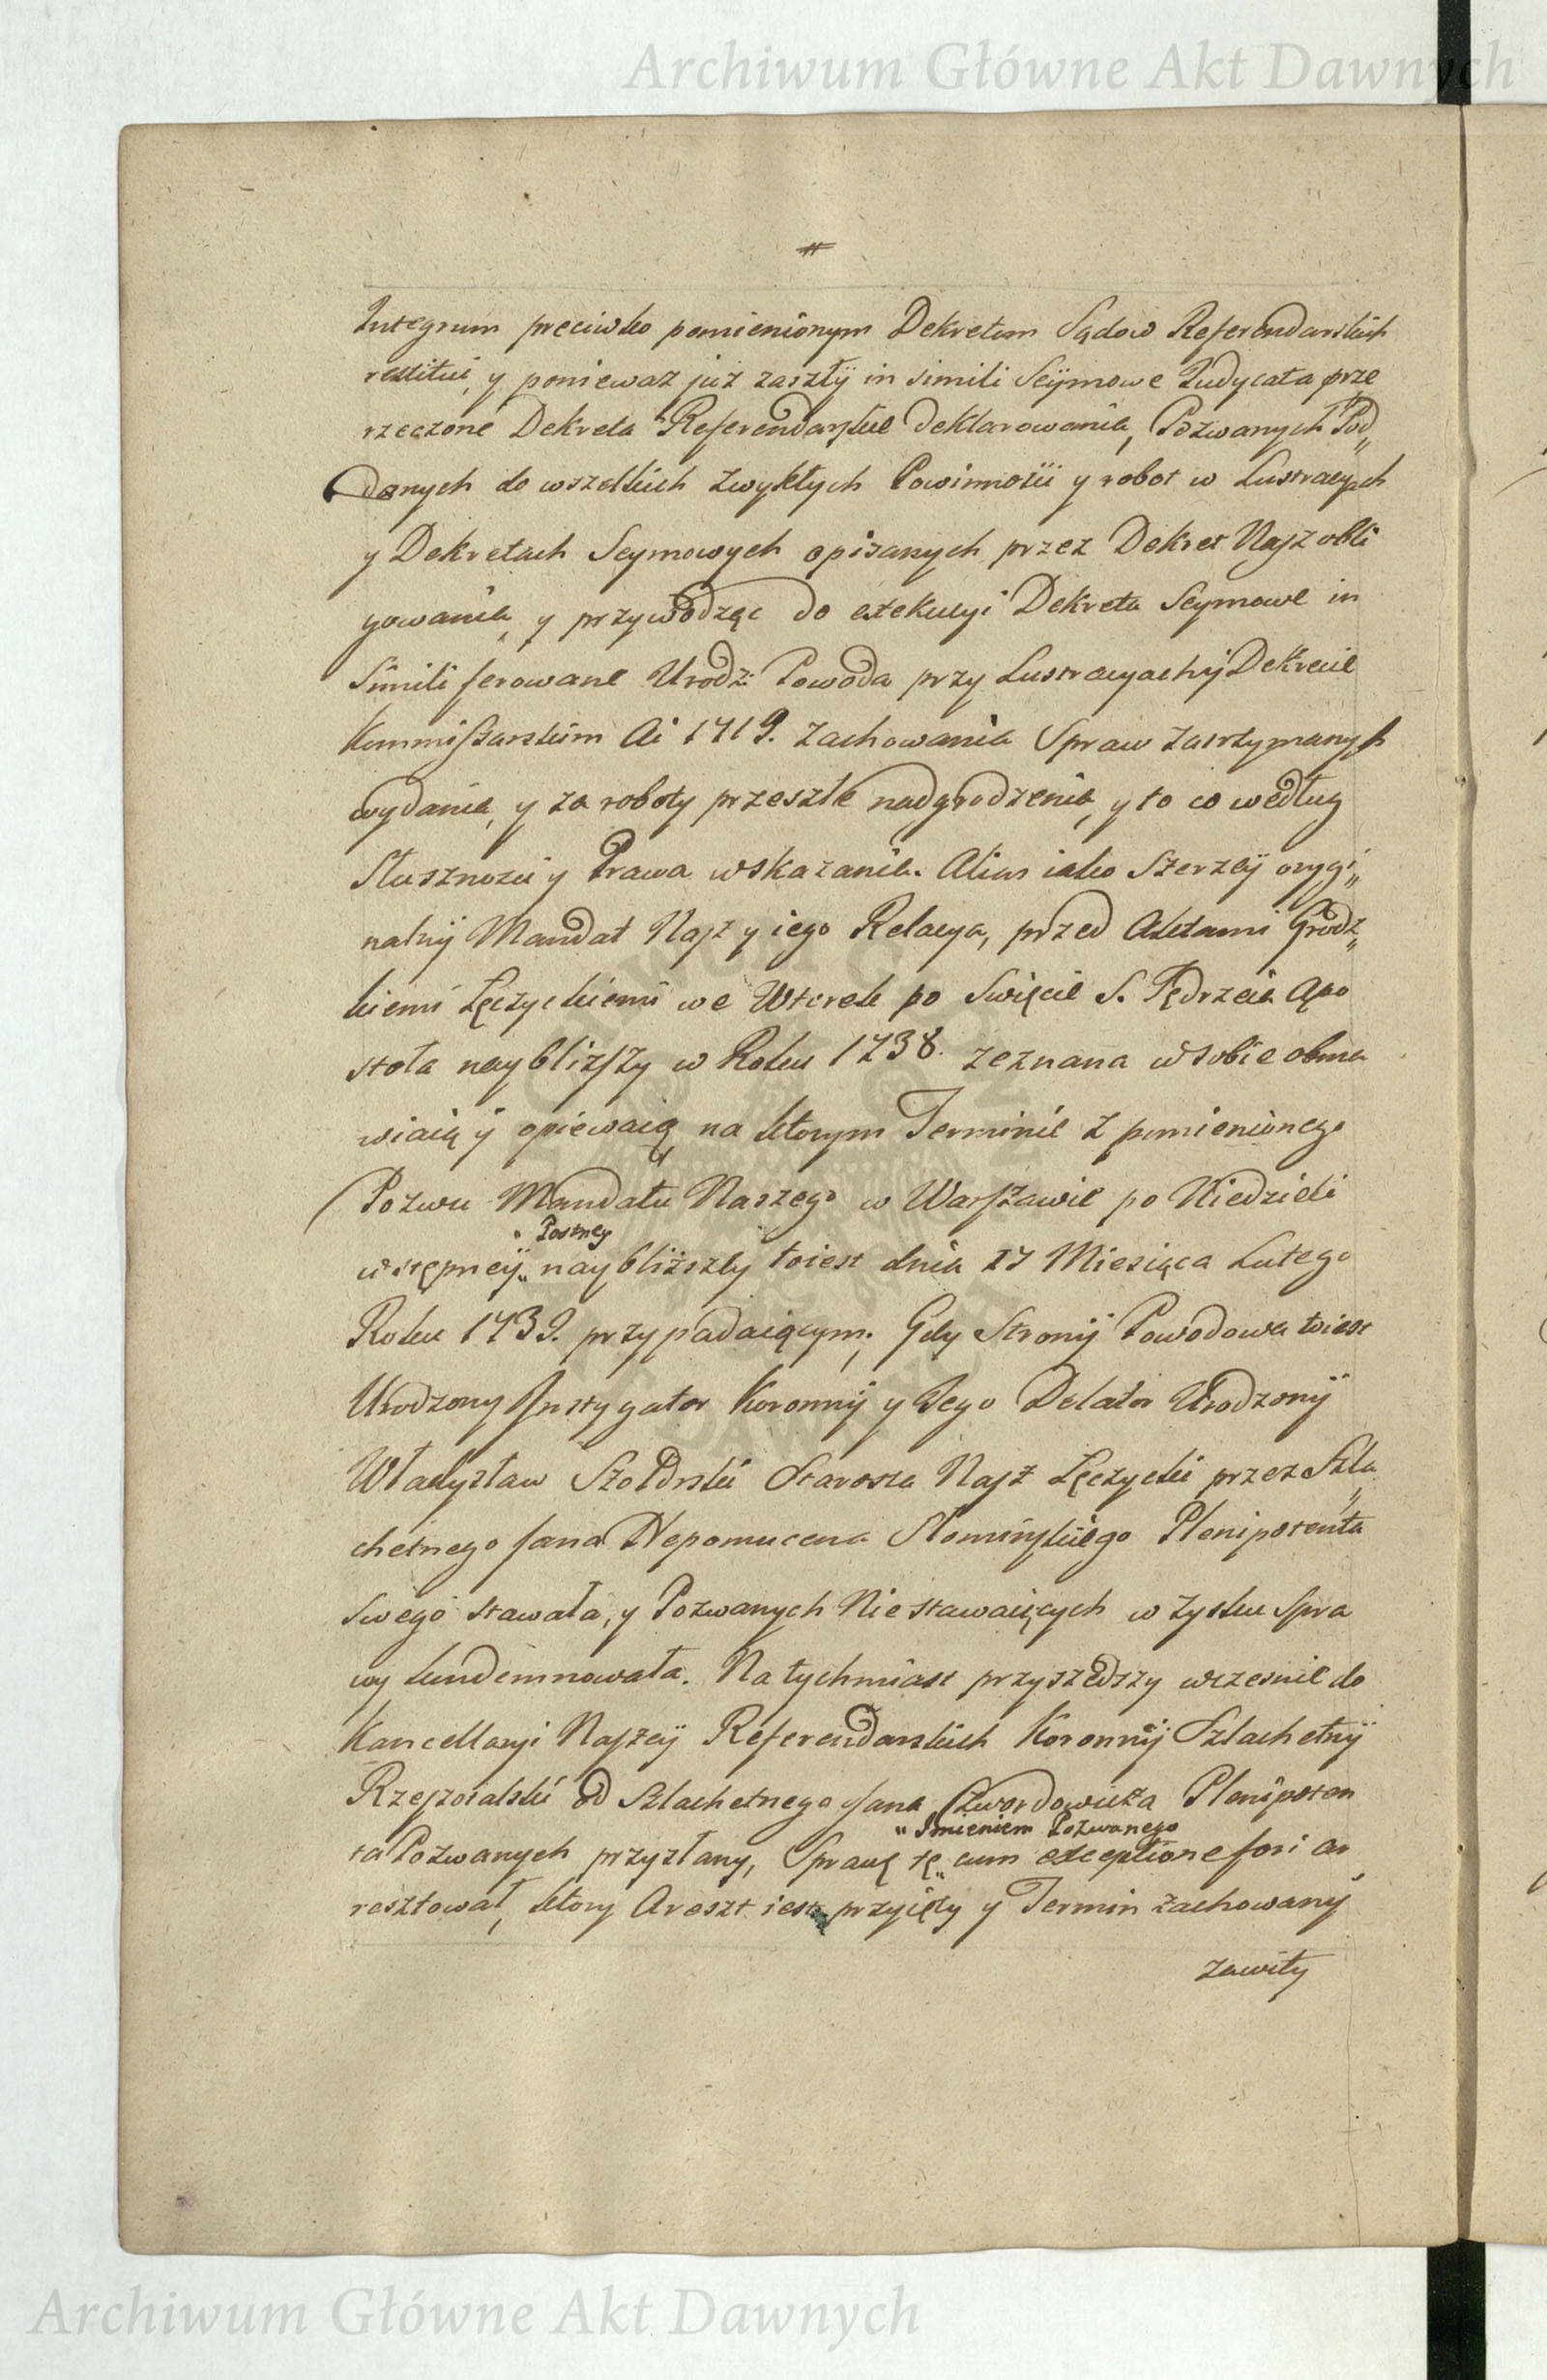 Archiwum Główne Akt Dawnych
Integrum preciwko pomienionym Dekretom Sądow Referendarskich
restitui, y poniewaz już zaszły in simili Seÿmowe Judycata prze
rzeczone Dekreta Referendarskie deklarowania, Pozwanych Pod„
danych do wszelkich zwykłych Powinności y robot w Lustracyach
y Dekretach Seymowych opisanych przez Dekret Nasz obli
gowania, y przywodząc do exekucyi Dekreta Seymowe in
Simili ferowane Urodz: Powoda przy Lustracyach y Dekrecie
Kommissarskim Ai 1719. zachowania Spraw zatrzymanych
wydania, y za roboty przeszłe nadgrodzenia, y to co według
Słusznosci y Prawa wskazania. Alias iako Szerzey orygi„
nalny Mandat Nasz y iego Relacya, przed Aktami Grodz„
kiemi Łęczyckiemi we Wtorek po Swięcie S. Jędrzeia Apo
stoła naybliższy w Roku 1738. zeznana w sobie obma
wiaią y opiewaią, na ktorym Terminie z pomienionego
Pozwu Mandatu Naszego w Warszawie po Niedzieli
„ Postney
wstępneÿ„ naybliższey toiest dnia 17 Miesiąca Lutego
Roku 1739. przypadaiącym; Gdy Strony Powodowa toiest
Urodzony Instygator Koronny y Jego Delator Urodzony
Władysław Szołdrski Starosta Nasz Łęczycki przez Szla
chetnego Jana Nepomucena Słomińskiego Plenipotenta
swego stawała, y Pozwanych Niestawaiących w zysku Spra
wy kondemnowała. Natychmiast przyszedszy wczesnie do
Kancellaryi Naszey Referendarskich Koronney Szlachetny
od Szlachetnego Jana Plenipoten
„ Imieniem Pozwanego
ta Pozwanych przysłany, Sprawę tę„ cum exceptione fori ar
resztował, ktory Areszt iest przyięty y Termin zachowany
zawity
Archiwum Główne Akt Dawnych